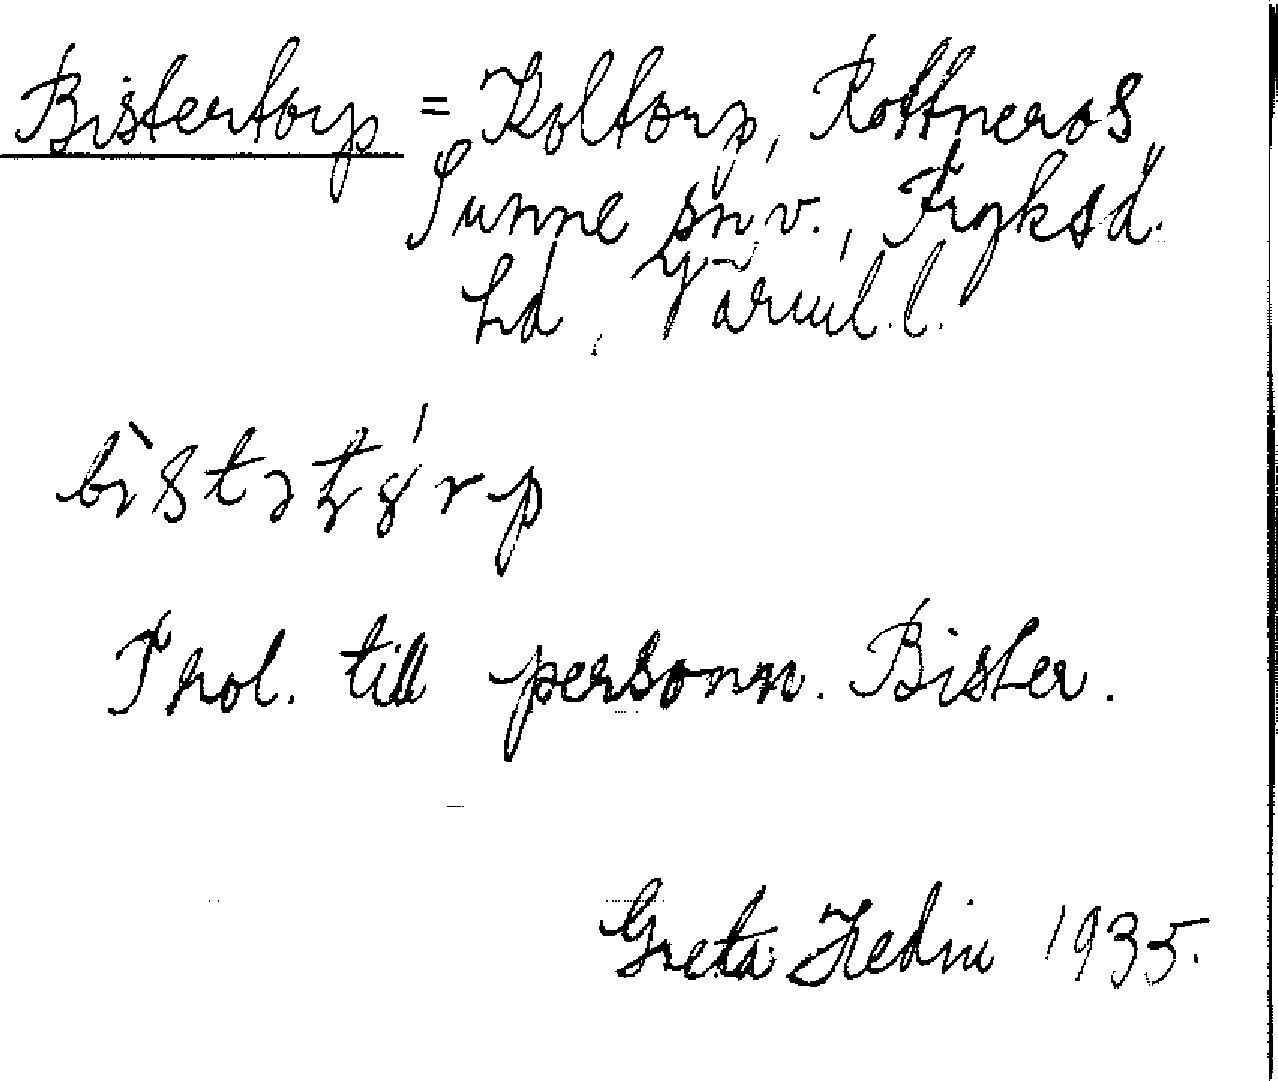 Bistertorp = Koltorp, Rottneros,
Sunne sn v., Fryksd.
hd, Värml. l.
Trol. till personn. Bister.
Greta Hedin 1935.